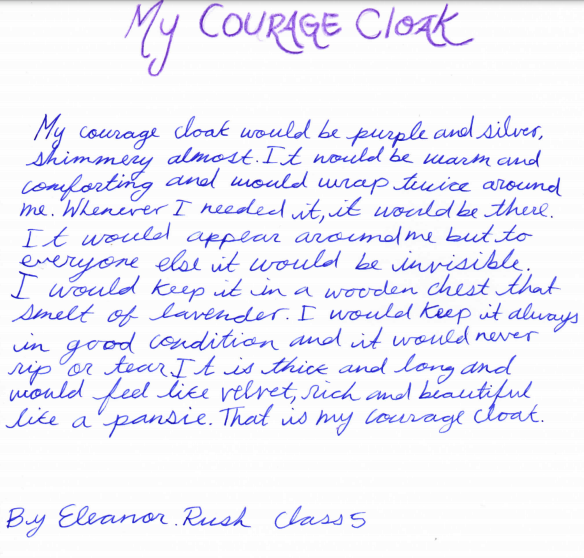 My COURAGE Cloak
My courage cloak would be purple and silver,
shimmery almost. It would be warm and
comforting and would wrap twice around
me. Whenever I needed it, it would be there.
It would appear around me but to
everyone else it would be invisible.
I would keep it in a wooden chest that
smelt of lavender. I would keep it always
in good condition and it would never
rip or tear It is thick and long and
would feel like velvet, rich and beautiful
like a pansie. That is my courage cloak.
By Eleanor. Rush Class 5